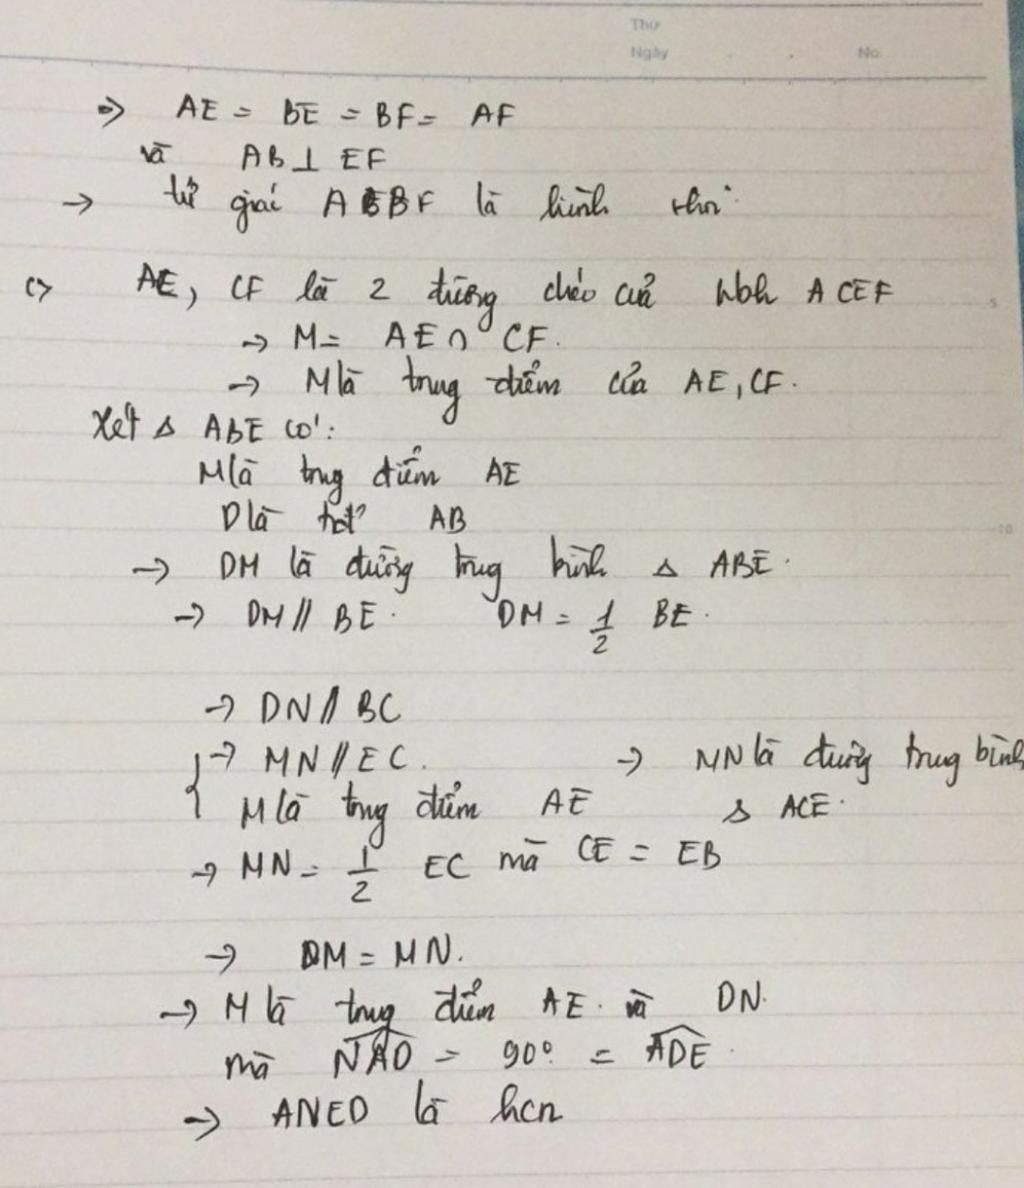 Thứ
Ngày . . No.
=> AE = BE = BF = AF
và AB ⊥ EF
→ tứ giác AEBF là hình thoi
c> AE, CF là 2 đường chéo của hbh ACEF
→ M = AE ∩ CF.
→ M là trung điểm của AE, CF.
Xét Δ ABE có:
M là trung điểm AE
D là AB
→ DM là đường trung bình Δ ABE.
→ DM // BE. DM = 1/2 BE.
→ DN // BC
→ MN // EC. → MN là đường trung bình
M là trung điểm AE Δ ACE.
→ MN = 1/2 EC mà CE = EB
→ DM = MN.
→ M là trung điểm AE. và DN.
mà NAD = 90° = ADE.
→ ANED là hcn
5
10